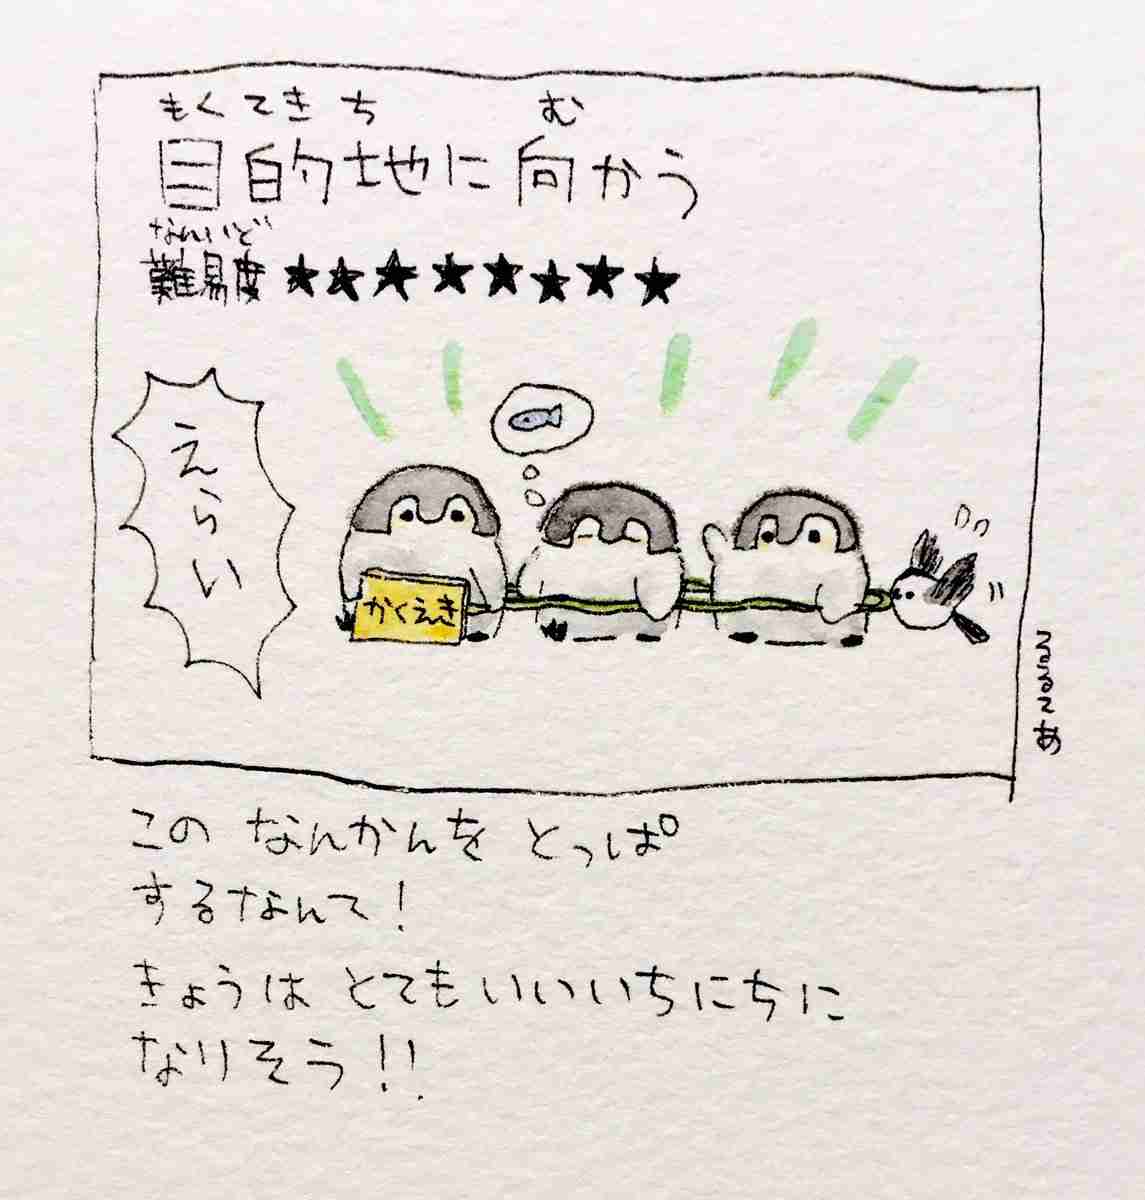 もくてきち む
目的地に向かう
なんいど
難易度 ★★★★★★★★
えらい
かくえき
るるてあ
この なんかんを とっぱ
するなんて!
きょうは とてもいいいちにちに
なりそう!!